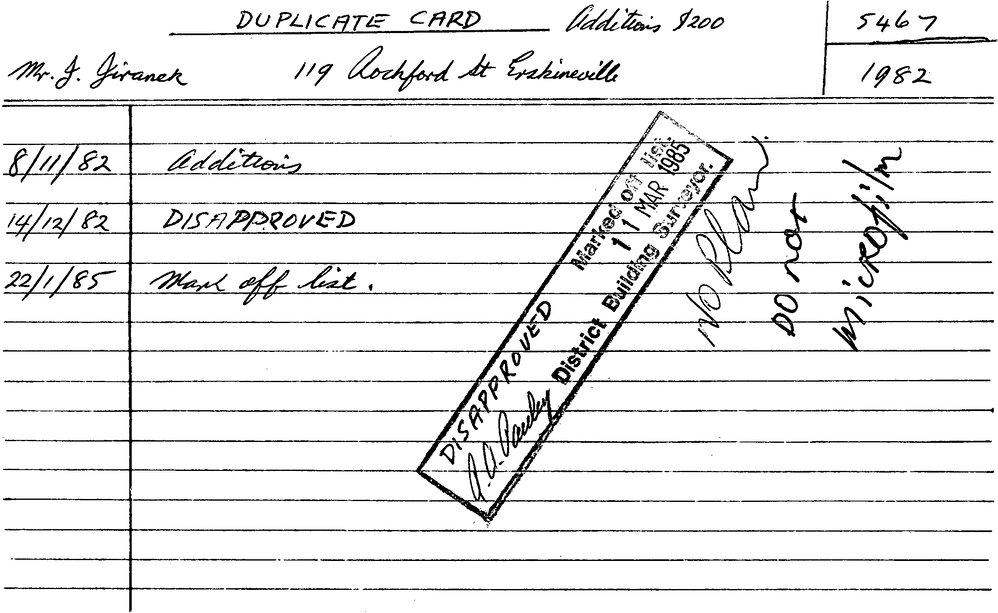 DUPLICATE CARD Additions $200 5467
Mr. J. Jiranek 119 Rochford St Erskineville 1982
8/11/82 Additions
14/12/82 DISAPPROVED
22/1/85 Mark off list.
Marked off list.
11 MAR 1985
DISAPPROVED
District Building Surveyor.
No Plan
DO not
Microfilm